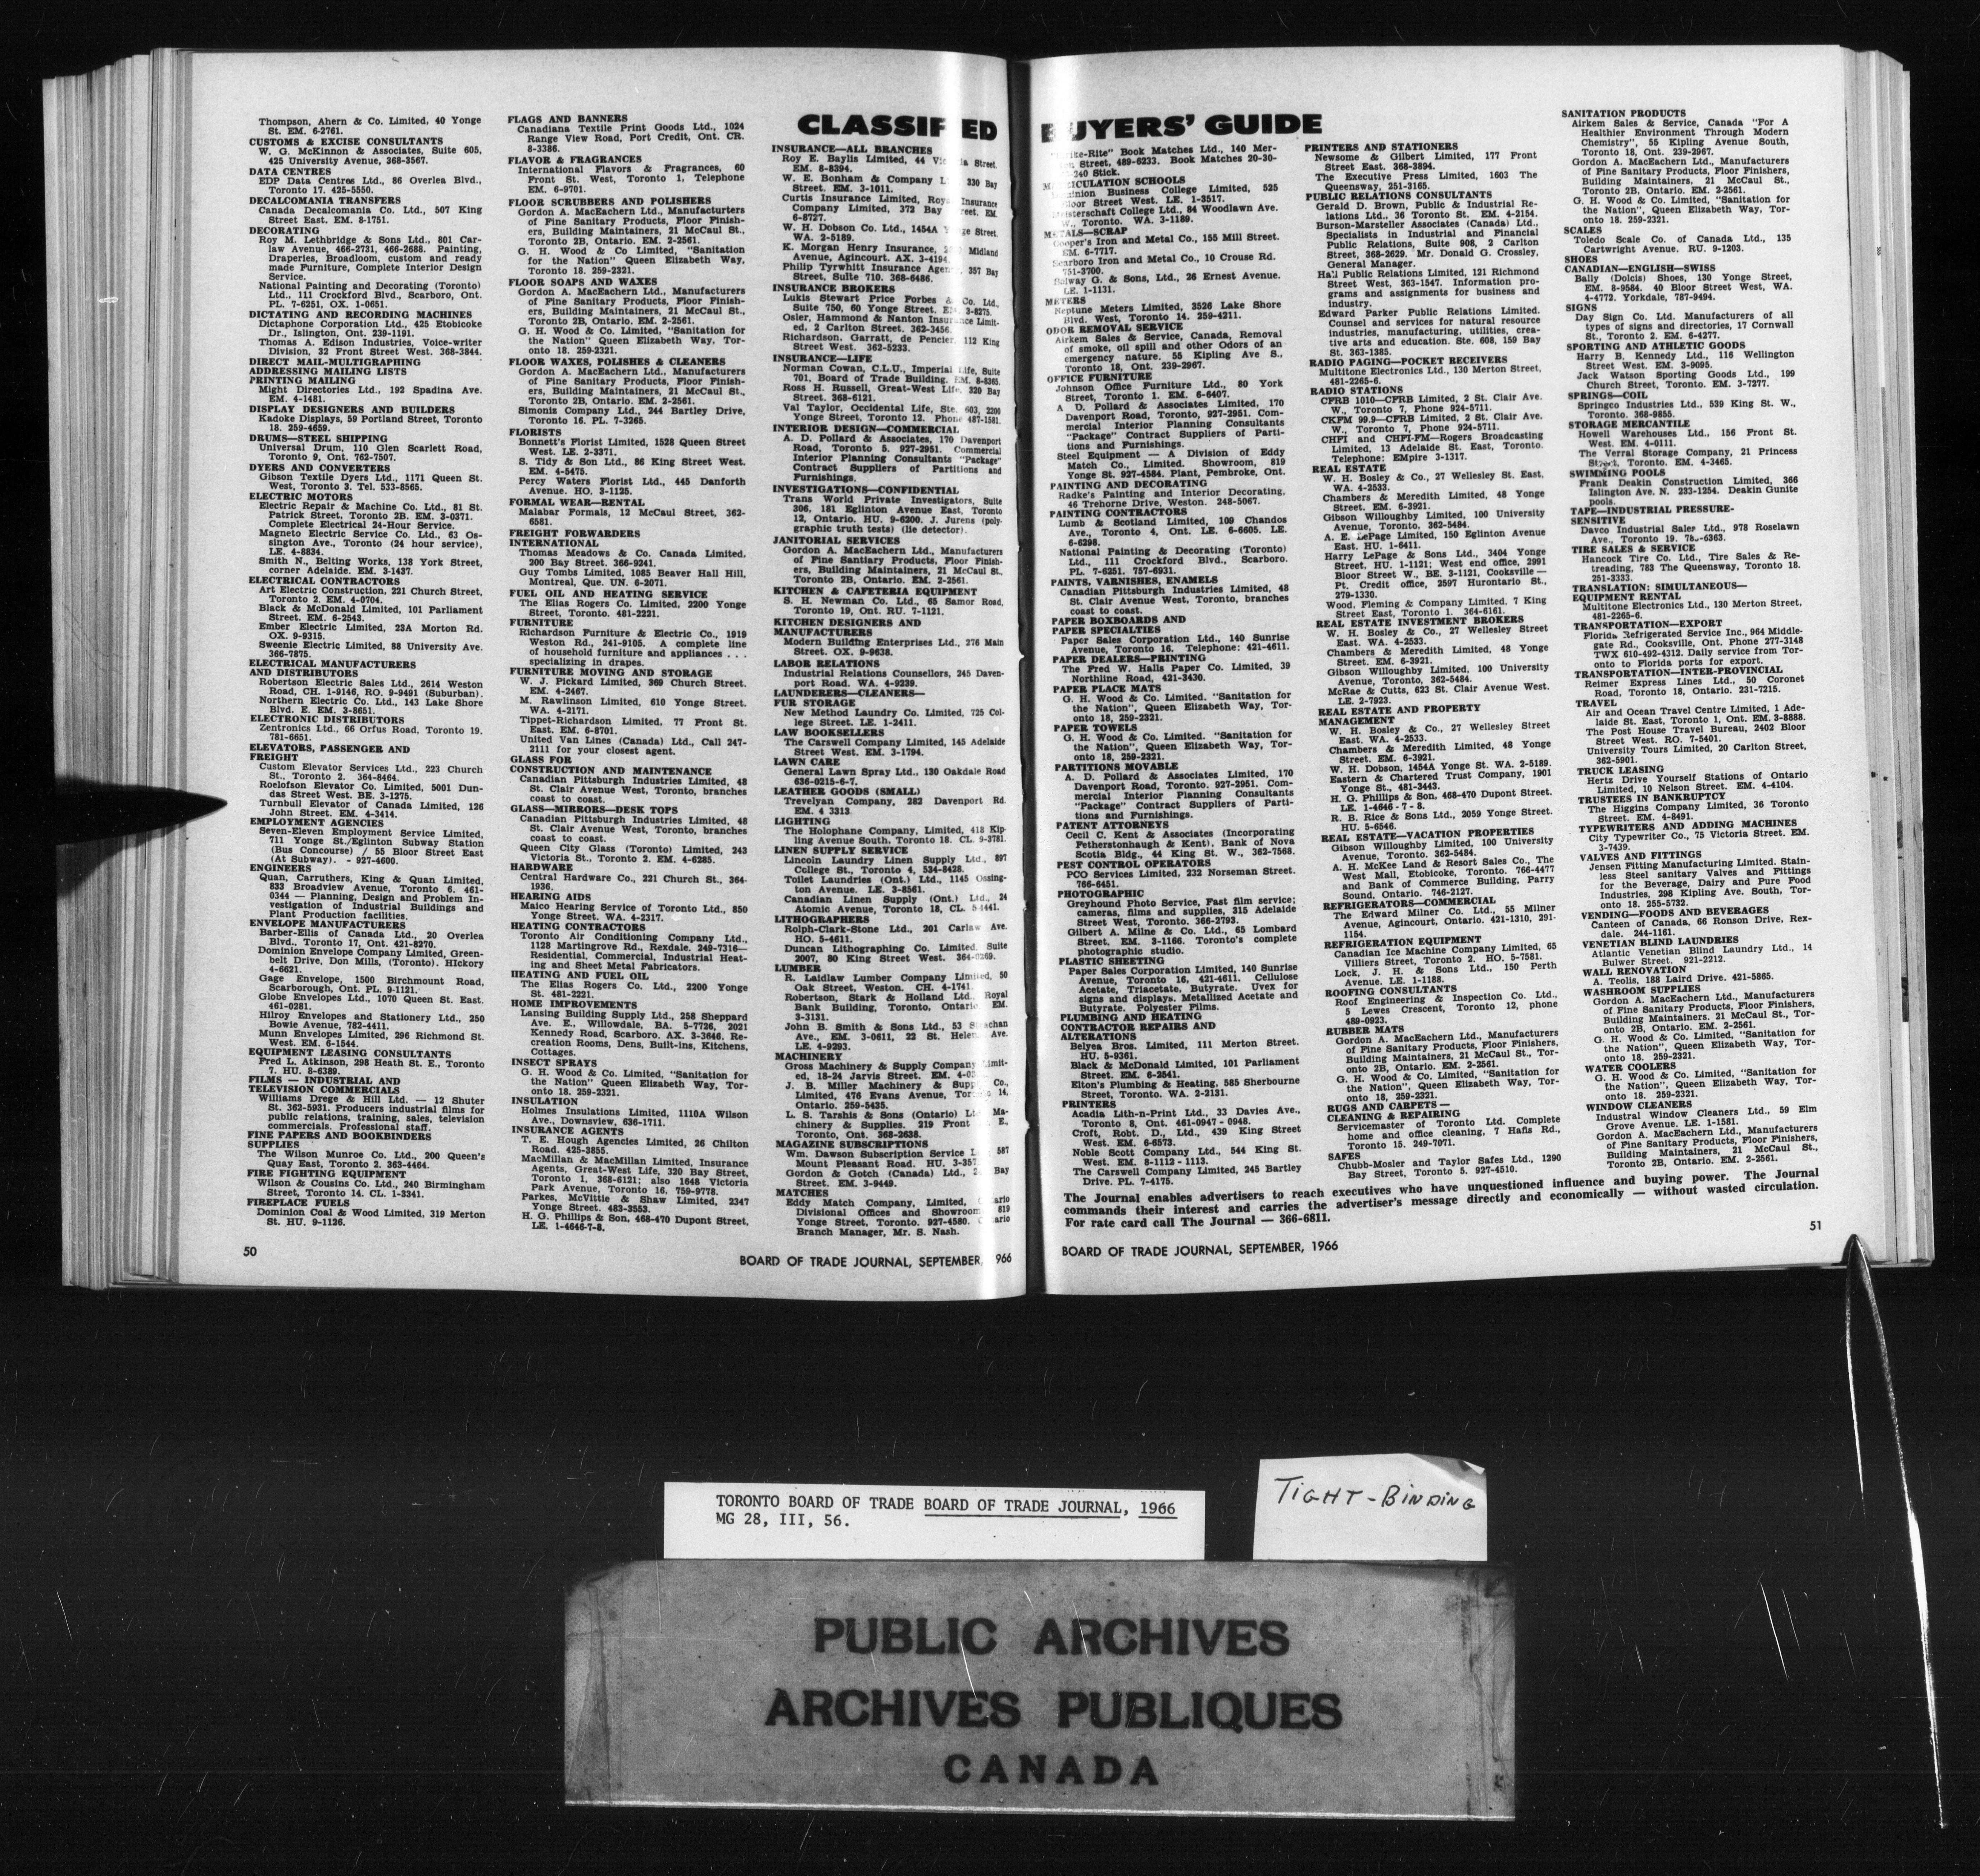 Thompson, Ahern & Co. Limited, 40 Yonge
St. EM. 6-2761.
CUSTOMS & EXCISE CONSULTANTS
W. G. McKinnon & Associates, Suite 605,
425 University Avenue, 368-3567.
DATA CENTRES
EDP Data Centres Ltd., 86 Overlea Blvd.,
Toronto 17. 425-5550.
DECALCOMANIA TRANSFERS
Canada Decalcomania Co. Ltd., 507 King
Street East. EM. 8-1751.
DECORATING
Roy M. Lethbridge & Sons Ltd., 801 Car-
law Avenue, 466-2731, 466-2688. Painting,
Draperies, Broadloom, custom and ready
made Furniture, Complete Interior Design
Service.
National Painting and Decorating (Toronto)
Ltd., 111 Crockford Blvd., Scarboro, Ont.
PL. 7-6251, OX. 1-0651.
DICTATING AND RECORDING MACHINES
Dictaphone Corporation Ltd., 425 Etobicoke
Dr., Islington, Ont. 239-1191.
Thomas A. Edison Industries, Voice-writer
Division, 32 Front Street West. 368-3844.
DIRECT MAIL-MULTIGRAPHING
ADDRESSING MAILING LISTS
PRINTING MAILING
Might Directories Ltd., 192 Spadina Ave.
EM. 4-1481.
DISPLAY DESIGNERS AND BUILDERS
Kadoke Displays, 59 Portland Street, Toronto
18. 259-4659.
DRUMS—STEEL SHIPPING
Universal Drum, 110 Glen Scarlett Road,
Toronto 9, Ont. 762-7507.
DYERS AND CONVERTERS
Gibson Textile Dyers Ltd., 1171 Queen St.
West, Toronto 3. Tel. 533-8565.
ELECTRIC MOTORS
Electric Repair & Machine Co. Ltd., 81 St.
Patrick Street, Toronto 2B. EM. 3-0371.
Complete Electrical 24-Hour Service.
Magneto Electric Service Co. Ltd., 63 Os-
sington Ave., Toronto (24 hour service),
LE. 4-8834.
Smith N., Belting Works, 138 York Street,
corner Adelaide. EM. 3-1437.
ELECTRICAL CONTRACTORS
Art Electric Construction, 221 Church Street,
Toronto 2. EM. 4-0704.
Black & McDonald Limited, 101 Parliament
Street. EM. 6-2543.
Ember Electric Limited, 23A Morton Rd.
OX. 9-9315.
Sweenie Electric Limited, 88 University Ave.
366-7875.
ELECTRICAL MANUFACTURERS
AND DISTRIBUTORS
Robertson Electric Sales Ltd., 2614 Weston
Road, CH. 1-9146, RO. 9-9491 (Suburban).
Northern Electric Co. Ltd., 143 Lake Shore
Blvd. E. EM. 3-8651.
ELECTRONIC DISTRIBUTORS
Zentronics Ltd., 66 Orfus Road, Toronto 19.
781-6651.
ELEVATORS, PASSENGER AND
FREIGHT
Custom Elevator Services Ltd., 223 Church
St., Toronto 2. 364-8464.
Roelofson Elevator Co. Limited, 5001 Dun-
das Street West. BE. 3-1275.
Turnbull Elevator of Canada Limited, 126
John Street. EM. 4-3414.
EMPLOYMENT AGENCIES
Seven-Eleven Employment Service Limited,
711 Yonge St./Eglinton Subway Station
(Bus Concourse) / 55 Bloor Street East
(At Subway). - 927-4600.
ENGINEERS
Quan, Carruthers, King & Quan Limited,
833 Broadview Avenue, Toronto 6. 461-
0344 — Planning, Design and Problem In-
vestigation of Industrial Buildings and
Plant Production facilities.
ENVELOPE MANUFACTURERS
Barber-Ellis of Canada Ltd., 20 Overlea
Blvd., Toronto 17, Ont. 421-8270.
Dominion Envelope Company Limited, Green-
belt Drive, Don Mills, (Toronto). HIckory
4-6621.
Gage Envelope, 1500 Birchmount Road,
Scarborough, Ont. PL. 9-1121.
Globe Envelopes Ltd., 1070 Queen St. East.
461-0281.
Hilroy Envelopes and Stationery Ltd., 250
Bowie Avenue, 782-4411.
Munn Envelopes Limited, 296 Richmond St.
West. EM. 6-1544.
EQUIPMENT LEASING CONSULTANTS
Fred L. Atkinson, 298 Heath St. E., Toronto
7. HU. 8-6389.
FILMS — INDUSTRIAL AND
TELEVISION COMMERCIALS
Williams Drege & Hill Ltd. — 12 Shuter
St. 362-5931. Producers industrial films for
public relations, training, sales, television
commercials. Professional staff.
FINE PAPERS AND BOOKBINDERS
SUPPLIES
The Wilson Munroe Co. Ltd., 200 Queen's
Quay East, Toronto 2. 363-4464.
FIRE FIGHTING EQUIPMENT
Wilson & Cousins Co. Ltd., 240 Birmingham
Street, Toronto 14. CL. 1-3341.
FIREPLACE FUELS
Dominion Coal & Wood Limited, 319 Merton
St. HU. 9-1126.
50
FLAGS AND BANNERS
Canadiana Textile Print Goods Ltd., 1024
Range View Road, Port Credit, Ont. CR.
8-3386.
FLAVOR & FRAGRANCES
International Flavors & Fragrances, 60
Front St. West, Toronto 1, Telephone
EM. 6-9701.
FLOOR SCRUBBERS AND POLISHERS
Gordon A. MacEachern Ltd., Manufacturters
of Fine Sanitary Products, Floor Finish-
ers, Building Maintainers, 21 McCaul St.,
Toronto 2B, Ontario. EM. 2-2561.
G. H. Wood & Co Limited, "Sanitation
for the Nation" Queen Elizabeth Way,
Toronto 18. 259-2321.
FLOOR SOAPS AND WAXES
Gordon A. MacEachern Ltd., Manufacturers
of Fine Sanitary Products, Floor Finish-
ers, Building Maintainers, 21 McCaul St.,
Toronto 2B, Ontario. EM. 2-2561.
G. H. Wood & Co. Limited, "Sanitation for
the Nation" Queen Elizabeth Way, Tor-
onto 18. 259-2321.
FLOOR WAXES, POLISHES & CLEANERS
Gordon A. MacEachern Ltd., Manufacturers
of Fine Sanitary Products, Floor Finish-
ers, Building Maintainers, 21 McCaul St.,
Toronto 2B, Ontario. EM. 2-2561.
Simonis Company Ltd., 244 Bartley Drive,
Toronto 16. PL. 7-3265.
FLORISTS
Bonnett's Florist Limited, 1528 Queen Street
West. LE. 2-3371.
S. Tidy & Son Ltd., 86 King Street West.
EM. 4-5475.
Percy Waters Florist Ltd., 445 Danforth
Avenue. HO. 3-1125.
FORMAL WEAR—RENTAL
Malabar Formals, 12 McCaul Street, 362-
6581.
FREIGHT FORWARDERS
INTERNATIONAL
Thomas Meadows & Co. Canada Limited.
200 Bay Street. 366-9241.
Guy Tombs Limited, 1085 Beaver Hall Hill,
Montreal, Que. UN. 6-2071.
FUEL OIL AND HEATING SERVICE
The Elias Rogers Co. Limited, 2200 Yonge
Street, Toronto. 481-2221.
FURNITURE
Richardson Furniture & Electric Co., 1919
Weston Rd., 241-9105. A complete line
of household furniture and appliances . . .
specializing in drapes.
FURNITURE MOVING AND STORAGE
W. J. Pickard Limited, 369 Church Street.
EM. 4-2467.
M. Rawlinson Limited, 610 Yonge Street.
WA. 4-2171.
Tippet-Richardson Limited, 77 Front St.
East. EM. 6-8701.
United Van Lines (Canada) Ltd., Call 247-
2111 for your closest agent.
GLASS FOR
CONSTRUCTION AND MAINTENANCE
Canadian Pittsburgh Industries Limited, 48
St. Clair Avenue West, Toronto, branches
coast to coast.
GLASS—MIRRORS—DESK TOPS
Canadian Pittsburgh Industries Limited, 48
St. Clair Avenue West, Toronto, branches
coast to coast.
Queen City Glass (Toronto) Limited, 243
Victoria St., Toronto 2. EM. 4-6285.
HARDWARE
Central Hardware Co., 221 Church St., 364-
1936.
HEARING AIDS
Maico Hearing Service of Toronto Ltd., 850
Yonge Street. WA. 4-2317.
HEATING CONTRACTORS
Toronto Air Conditioning Company Ltd.,
1128 Martingrove Rd., Rexdale. 249-7316—
Residential, Commercial, Industrial Heat-
ing and Sheet Metal Fabricators.
HEATING AND FUEL OIL
The Elias Rogers Co. Ltd., 2200 Yonge
St. 481-2221.
HOME IMPROVEMENTS
Lansing Building Supply Ltd., 258 Sheppard
Ave. E., Willowdale, BA. 5-7726, 2021
Kennedy Road, Scarboro. AX. 3-3646. Re-
creation Rooms, Dens, Built-ins, Kitchens,
Cottages.
INSECT SPRAYS
G. H. Wood & Co. Limited, "Sanitation for
the Nation" Queen Elizabeth Way, Tor-
onto 18. 259-2321.
INSULATION
Holmes Insulations Limited, 1110A Wilson
Ave., Downsview, 636-1711.
INSURANCE AGENTS
T. E. Hough Agencies Limited, 26 Chilton
Road. 425-3855.
MacMillan & MacMillan Limited, Insurance
Agents, Great-West Life, 320 Bay Street,
Toronto 1, 368-6121; also 1648 Victoria
Park Avenue, Toronto 16. 759-9778.
Parkes, McVittie & Shaw Limited, 2347
Yonge Street. 483-3553.
H. G. Phillips & Son, 468-470 Dupont Street,
LE. 1-4646-7-8.
CLASSIFIED
INSURANCE—ALL BRANCHES
Roy E. Baylis Limited, 44 Street,
EM. 8-8394.
W. E. Bonham & Company 330 Bay
Street. EM. 3-1011.
Curtis Insurance Limited, Insurance
Company Limited, 372 Bay EM.
6-8727.
W. H. Dobson Co. Ltd., 1454A Street,
WA. 2-5189.
K. Morgan Henry Insurance, Midland
Avenue, Agincourt. AX. 3-4194.
Philip Tyrwhitt Insurance 357 Bay
Street, Suite 710. 368-6486.
INSURANCE BROKERS
Lukis Stewart Price Forbes & Co. Ltd.,
Suite 750, 60 Yonge Street. 3-8275.
Osler, Hammond & Nanton Insurance Limit-
ed, 2 Carlton Street. 362-3456.
Richardson, Garratt, de Pencier, 112 King
Street West. 362-5233.
INSURANCE—LIFE
Norman Cowan, C.L.U., Imperial Life, Suite
701, Board of Trade Building. EM. 8-8365.
Ross H. Russell, Great-West Life, 320 Bay
Street. 368-6121.
Val Taylor, Occidental Life, Ste. 603, 2200
Yonge Street, Toronto 12. Phone 487-1581.
INTERIOR DESIGN—COMMERCIAL
A. D. Pollard & Associates, 170 Davenport
Road, Toronto 5. 927-2951. Commercial
Interior Planning Consultants "Package"
Contract Suppliers of Partitions and
Furnishings.
INVESTIGATIONS—CONFIDENTIAL
Trans World Private Investigators, Suite
306, 181 Eglinton Avenue East, Toronto
12, Ontario. HU. 9-6200. J. Jurens (poly-
graphic truth tests) (lie detector).
JANITORIAL SERVICES
Gordon A. MacEachern Ltd., Manufacturers
of Fine Sanitary Products, Floor Finish-
ers, Building Maintainers, 21 McCaul St.,
Toronto 2B, Ontario. EM. 2-2561.
KITCHEN & CAFETERIA EQUIPMENT
S. H. Newman Co. Ltd., 65 Samor Road,
Toronto 19, Ont. RU. 7-1121.
KITCHEN DESIGNERS AND
MANUFACTURERS
Modern Building Enterprises Ltd., 276 Main
Street. OX. 9-9638.
LABOR RELATIONS
Industrial Relations Counsellors, 245 Daven-
port Road. WA. 4-9239.
LAUNDERERS—CLEANERS—
FUR STORAGE
New Method Laundry Co. Limited, 725 Col-
lege Street. LE. 1-2411.
LAW BOOKSELLERS
The Carswell Company Limited, 145 Adelaide
Street West. EM. 3-1794.
LAWN CARE
General Lawn Spray Ltd., 130 Oakdale Road
636-0215-6-7.
LEATHER GOODS (SMALL)
Trevelyan Company, 282 Davenport Rd.
EM. 4 3313.
LIGHTING
The Holophane Company, Limited, 418 Kip-
ling Avenue South, Toronto 18. CL. 9-3781.
LINEN SUPPLY SERVICE
Lincoln Laundry Linen Supply Ltd., 897
College St., Toronto 4, 534-8428.
Toilet Laundries (Ont.) Ltd., 1145 Ossing-
ton Avenue. LE. 3-8561.
Canadian Linen Supply (Ont.) Ltd., 24
Atomic Avenue, Toronto 18, CL.
LITHOGRAPHERS
Rolph-Clark-Stone Ltd., 201 Carlaw Ave.
HO. 5-4611.
Duncan Lithographing Co. Limited. Suite
2007, 80 King Street West.
LUMBER
R. Laidlaw Lumber Company Limited, 50
Oak Street, Weston. CH. 4-1741.
Robertson, Stark & Holland Ltd., Royal
Bank Building, Toronto, Ontario EM.
3-3131.
John B. Smith & Sons Ltd., 53 Strachan
Ave., EM. 3-0611, 22 St. Helens Ave.
LE. 4-9293.
MACHINERY
Gross Machinery & Supply Company Limit-
ed, 18-24 Jarvis Street.
J. B. Miller Machinery & Supply Co.,
Limited, 476 Evans Avenue, Toronto 14,
Ontario. 259-5435.
L. S. Tarshis & Sons (Ontario) Ma-
chinery & Supplies. 219 Front E.,
Toronto, Ont. 368-2638.
MAGAZINE SUBSCRIPTIONS
Wm. Dawson Subscription Service 587
Mount Pleasant Road.
Gordon & Gotch (Canada) Ltd., Bay
Street. EM. 3-9449.
MATCHES
Eddy Match Company, Limited,
Divisional Offices and Showroom 819
Yonge Street, Toronto. 927-4580.
Branch Manager, Mr. S. Nash.
BOARD OF TRADE JOURNAL, SEPTEMBER, 966
BUYERS' GUIDE
Book Matches Ltd., 140 Mer-
Street, 489-6233. Book Matches 20-30-
240 Stick.
MATRICULATION SCHOOLS
Dominion Business College Limited, 525
Bloor Street West. LE. 1-3517.
Meisterschaft College Ltd., 84 Woodlawn Ave.
W., Toronto. WA. 3-1189.
METALS—SCRAP
Cooper's Iron and Metal Co., 155 Mill Street.
EM. 6-7717.
Scarboro Iron and Metal Co., 10 Crouse Rd.
751-3700.
Solway G. & Sons, Ltd., 26 Ernest Avenue.
LE. 1-1131.
METERS
Neptune Meters Limited, 3526 Lake Shore
Blvd. West, Toronto 14. 259-4211.
ODOR REMOVAL SERVICE
Airkem Sales & Service, Canada, Removal
of smoke, oil spill and other Odors of an
emergency nature. 55 Kipling Ave S.,
Toronto 18, Ont. 239-2967.
OFFICE FURNITURE
Johnson Office Furniture Ltd., 80 York
Street, Toronto 1. EM. 6-6407.
A D. Pollard & Associates Limited, 170
Davenport Road, Toronto, 927-2951. Com-
mercial Interior Planning Consultants
"Package" Contract Suppliers of Parti-
tions and Furnishings.
Steel Equipment — A Division of Eddy
Match Co., Limited. Showroom, 819
Yonge St. 927-4584. Plant, Pembroke, Ont.
PAINTING AND DECORATING
Radke's Painting and Interior Decorating,
46 Trehorne Drive, Weston. 248-5067.
PAINTING CONTRACTORS
Lumb & Scotland Limited, 109 Chandos
Ave., Toronto 4, Ont. LE. 6-6605. LE.
6-6298.
National Painting & Decorating (Toronto)
Ltd., 111 Crockford Blvd., Scarboro.
PL. 7-6251. 757-6931.
PAINTS, VARNISHES, ENAMELS
Canadian Pittsburgh Industries Limited, 48
St. Clair Avenue West, Toronto, branches
coast to coast.
PAPER BOXBOARDS AND
PAPER SPECIALTIES
Paper Sales Corporation Ltd., 140 Sunrise
Avenue, Toronto 16. Telephone: 421-4611.
PAPER DEALERS—PRINTING
The Fred W. Halls Paper Co. Limited, 39
Northline Road, 421-3430.
PAPER PLACE MATS
G. H. Wood & Co. Limited. "Sanitation for
the Nation", Queen Elizabeth Way, Tor-
onto 18, 259-2321.
PAPER TOWELS
G. H. Wood & Co. Limited. "Sanitation for
the Nation", Queen Elizabeth Way, Tor-
onto 18, 259-2321.
PARTITIONS MOVABLE
A. D. Pollard & Associates Limited, 170
Davenport Road, Toronto. 927-2951. Com-
mercial Interior Planning Consultants
"Package" Contract Suppliers of Parti-
tions and Furnishings.
PATENT ATTORNEYS
Cecil C. Kent & Associates (Incorporating
Fetherstonhaugh & Kent), Bank of Nova
Scotia Bldg., 44 King St. W., 362-7568.
PEST CONTROL OPERATORS
PCO Services Limited, 232 Norseman Street.
766-6451.
PHOTOGRAPHIC
Greyhound Photo Service, Fast film service;
cameras, films and supplies, 315 Adelaide
Street West, Toronto. 366-2793.
Gilbert A. Milne & Co. Ltd., 65 Lombard
Street. EM. 3-1166. Toronto's complete
photographic studio.
PLASTIC SHEETING
Paper Sales Corporation Limited, 140 Sunrise
Avenue, Toronto 16, 421-4611. Cellulose
Acetate, Triacetate, Butyrate. Uvex for
signs and displays. Metallized Acetate and
Butyrate. Polyester Films.
PLUMBING AND HEATING
CONTRACTOR REPAIRS AND
ALTERATIONS
Belyea Bros. Limited, 111 Merton Street.
HU. 5-9361.
Black & McDonald Limited, 101 Parliament
Street. EM. 6-2541.
Elton's Plumbing & Heating, 585 Sherbourne
Street, Toronto. WA. 2-2131.
PRINTERS
Acadia Lith-n-Print Ltd., 33 Davies Ave.,
Toronto 8, Ont. 461-0947 - 0948.
Croft, Robt. D., Ltd., 439 King Street
West. EM. 6-6573.
Noble Scott Company Ltd., 544 King St.
West. EM. 8-1112 - 1113.
The Carswell Company Limited, 245 Bartley
Drive. PL. 7-4175.
PRINTERS AND STATIONERS
Newsome & Gilbert Limited, 177 Front
Street East. 368-3894.
The Executive Press Limited, 1603 The
Queensway, 251-3165.
PUBLIC RELATIONS CONSULTANTS
Gerald D. Brown, Public & Industrial Re-
lations Ltd., 36 Toronto St. EM. 4-2154.
Burson-Marsteller Associates (Canada) Ltd.,
Specialists in Industrial and Financial
Public Relations, Suite 908, 2 Carlton
Street, 368-2629. Mr. Donald G. Crossley,
General Manager.
Hall Public Relations Limited, 121 Richmond
Street West, 363-1547. Information pro-
grams and assignments for business and
industry.
Edward Parker Public Relations Limited.
Counsel and services for natural resource
industries, manufacturing, utilities, crea-
tive arts and education. Ste. 608, 159 Bay
St. 363-1385.
RADIO PAGING—POCKET RECEIVERS
Multitone Electronics Ltd., 130 Merton Street,
481-2265-6.
RADIO STATIONS
CFRB 1010—CFRB Limited, 2 St. Clair Ave.
W., Toronto 7, Phone 924-5711.
CKFM 99.9—CFRB Limited, 2 St. Clair Ave.
W., Toronto 7, Phone 924-5711.
CHFI and CHFI-FM—Rogers Broadcasting
Limited, 13 Adelaide St. East, Toronto.
Telephone: EMpire 3-1317.
REAL ESTATE
W. H. Bosley & Co., 27 Wellesley St. East.
WA. 4-2533.
Chambers & Meredith Limited, 48 Yonge
Street. EM. 6-3921.
Gibson Willoughby Limited, 100 University
Avenue, Toronto. 362-5484.
A. E. LePage Limited, 150 Eglinton Avenue
East. HU. 1-6411.
Harry LePage & Sons Ltd., 3404 Yonge
Street. HU. 1-1121; West end office, 2991
Bloor Street W., BE. 3-1121, Cooksville —
Pt. Credit office, 2597 Hurontario St.,
279-1330.
Wood, Fleming & Company Limited, 7 King
Street East, Toronto 1. 364-6161.
REAL ESTATE INVESTMENT BROKERS
W. H. Bosley & Co., 27 Wellesley Street
East. WA. 4-2533.
Chambers & Meredith Limited, 48 Yonge
Street. EM. 6-3921.
Gibson Willoughby Limited, 100 University
Avenue, Toronto. 362-5484.
McRae & Cutts, 623 St. Clair Avenue West.
LE. 2-7923.
REAL ESTATE AND PROPERTY
MANAGEMENT
W. H. Bosley & Co., 27 Wellesley Street
East. WA. 4-2533.
Chambers & Meredith Limited, 48 Yonge
Street. EM. 6-3921.
W. H. Dobson, 1454A Yonge St. WA. 2-5189.
Eastern & Chartered Trust Company, 1901
Yonge St., 481-3443.
H. G. Phillips & Son, 468-470 Dupont Street.
LE. 1-4646 - 7 - 8.
R. B. Rice & Sons Ltd., 2059 Yonge Street.
HU. 5-6546.
REAL ESTATE—VACATION PROPERTIES
Gibson Willoughby Limited, 100 University
Avenue, Toronto. 362-5484.
A. H. McKee Land & Resort Sales Co., The
West Mall, Etobicoke, Toronto. 766-4477
and Bank of Commerce Building, Parry
Sound, Ontario. 746-2127.
REFRIGERATORS—COMMERCIAL
The Edward Milner Co. Ltd., 55 Milner
Avenue, Agincourt, Ontario. 421-1310, 291-
1154.
REFRIGERATION EQUIPMENT
Canadian Ice Machine Company Limited, 65
Villiers Street, Toronto 2. HO. 5-7581.
Lock, J. H. & Sons Ltd., 150 Perth
Avenue. LE. 1-1188.
ROOFING CONSULTANTS
Roof Engineering & Inspection Co. Ltd.,
5 Lewes Crescent, Toronto 12, phone
489-0923.
RUBBER MATS
Gordon A. MacEachern Ltd., Manufacturers
of Fine Sanitary Products, Floor Finishers,
Building Maintainers, 21 McCaul St., Tor-
onto 2B, Ontario. EM. 2-2561.
G. H. Wood & Co. Limited, "Sanitation for
the Nation", Queen Elizabeth Way, Tor-
onto 18, 259-2321.
RUGS AND CARPETS —
CLEANING & REPAIRING
Servicemaster of Toronto Ltd. Complete
home and office cleaning, 7 Hafis Rd.,
Toronto 15. 249-7071.
SAFES
Chubb-Mosler and Taylor Safes Ltd., 1290
Bay Street, Toronto 5. 927-4510.
SANITATION PRODUCTS
Airkem Sales & Service, Canada "For A
Healthier Environment Through Modern
Chemistry", 55 Kipling Avenue South,
Toronto 18, Ont. 239-2967.
Gordon A. MacEachern Ltd., Manufacturers
of Fine Sanitary Products, Floor Finishers,
Building Maintainers, 21 McCaul St.,
Toronto 2B, Ontario. EM. 2-2561.
G. H. Wood & Co. Limited, "Sanitation for
the Nation", Queen Elizabeth Way, Tor-
onto 18. 259-2321.
SCALES
Toledo Scale Co. of Canada Ltd., 135
Cartwright Avenue. RU. 9-1203.
SHOES
CANADIAN—ENGLISH—SWISS
Bally (Dolcis) Shoes, 130 Yonge Street,
EM. 8-9584. 40 Bloor Street West, WA.
4-4772. Yorkdale, 787-9494.
SIGNS
Day Sign Co. Ltd. Manufacturers of all
types of signs and directories, 17 Cornwall
St., Toronto 2. EM. 6-4277.
SPORTING AND ATHLETIC GOODS
Harry B. Kennedy Ltd., 116 Wellington
Street West. EM. 3-9095.
Jack Watson Sporting Goods Ltd., 199
Church Street, Toronto. EM. 3-7277.
SPRINGS—COIL
Springco Industries Ltd., 539 King St. W.,
Toronto. 368-9855.
STORAGE MERCANTILE
Howell Warehouses Ltd., 156 Front St.
West. EM. 4-0111.
The Verral Storage Company, 21 Princess
Street, Toronto. EM. 4-3465.
SWIMMING POOLS
Frank Deakin Construction Limited, 366
Islington Ave. N. 233-1254. Deakin Gunite
pools.
TAPE—INDUSTRIAL PRESSURE-
SENSITIVE
Davco Industrial Sales Ltd., 978 Roselawn
Ave., Toronto 19.
TIRE SALES & SERVICE
Hancock Tire Co. Ltd., Tire Sales & Re-
treading, 783 The Queensway, Toronto 18.
251-3333.
TRANSLATION: SIMULTANEOUS—
EQUIPMENT RENTAL
Multitone Electronics Ltd., 130 Merton Street,
481-2265-6.
TRANSPORTATION—EXPORT
Florida Refrigerated Service Inc., 964 Middle-
gate Rd., Cooksville, Ont. Phone 277-3148
TWX 610-492-4312. Daily service from Tor-
onto to Florida ports for export.
TRANSPORTATION—INTER-PROVINCIAL
Reimer Express Lines Ltd., 50 Coronet
Road, Toronto 18, Ontario. 231-7215.
TRAVEL
Air and Ocean Travel Centre Limited, 1 Ade-
laide St. East, Toronto 1, Ont. EM. 3-8888.
The Post House Travel Bureau, 2402 Bloor
Street West. RO. 7-5401.
University Tours Limited, 20 Carlton Street,
362-5901.
TRUCK LEASING
Hertz Drive Yourself Stations of Ontario
Limited, 10 Nelson Street. EM. 4-4104.
TRUSTEES IN BANKRUPTCY
The Higgins Company Limited, 36 Toronto
Street. EM. 4-8491.
TYPEWRITERS AND ADDING MACHINES
City Typewriter Co., 75 Victoria Street. EM.
3-7439.
VALVES AND FITTINGS
Jensen Fitting Manufacturing Limited. Stain-
less Steel sanitary Valves and Fittings
for the Beverage, Dairy and Pure Food
Industries, 298 Kipling Ave. South, Tor-
onto 18. 255-5732.
VENDING—FOODS AND BEVERAGES
Canteen of Canada, 66 Ronson Drive, Rex-
dale. 244-1161.
VENETIAN BLIND LAUNDRIES
Atlantic Venetian Blind Laundry Ltd., 14
Bulwer Street. 921-2212.
WALL RENOVATION
A. Teolis, 188 Laird Drive. 421-5865.
WASHROOM SUPPLIES
Gordon A. MacEachern Ltd., Manufacturers
of Fine Sanitary Products, Floor Finishers,
Building Maintainers. 21 McCaul St., Tor-
onto 2B, Ontario. EM. 2-2561.
G. H. Wood & Co. Limited, "Sanitation for
the Nation", Queen Elizabeth Way, Tor-
onto 18. 259-2321.
WATER COOLERS
G. H. Wood & Co. Limited, "Sanitation for
the Nation", Queen Elizabeth Way, Tor-
onto 18. 259-2321.
WINDOW CLEANERS
Industrial Window Cleaners Ltd., 59 Elm
Grove Avenue. LE. 1-1581.
Gordon A. MacEachern Ltd., Manufacturers
of Fine Sanitary Products, Floor Finishers,
Building Maintainers, 21 McCaul St.,
Toronto 2B, Ontario. EM. 2-2561.
The Journal enables advertisers to reach executives who have unquestioned influence and buying power. The Journal
commands their interest and carries the advertiser's message directly and economically — without wasted circulation.
For rate card call The Journal — 366-6811.
51
BOARD OF TRADE JOURNAL, SEPTEMBER, 1966
TORONTO BOARD OF TRADE BOARD OF TRADE JOURNAL, 1966
MG 28, III, 56.
TIGHT-BINDING
PUBLIC ARCHIVES
ARCHIVES PUBLIQUES
CANADA